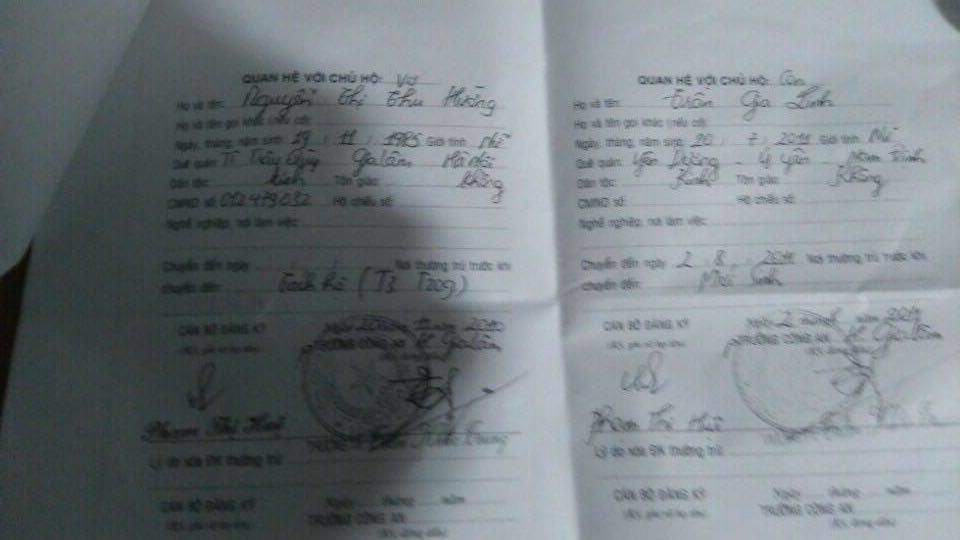 QUAN HỆ VỚI CHỦ HỘ: Vợ
Họ và tên: Nguyễn Thị Thu Hường
Họ và tên gọi khác (nếu có):
Ngày, tháng, năm sinh: 19 / 11 / 1985 Giới tính: Nữ
Quê quán: TT Trâu Quỳ Gia Lâm Hà Nội
Dân tộc: Kinh Tôn giáo: Không
CMND số: 012479032 Hộ chiếu số:
Nghề nghiệp, nơi làm việc:
Chuyển đến ngày Nơi thường trú trước khi
chuyển đến: Tách hộ
CÁN BỘ ĐĂNG KÝ Ngày 20 tháng 11 năm 2010
TRƯỞNG CÔNG AN H. Gia Lâm
Phạm Thị Huệ
Lý do xóa ĐK thường trú:
CÁN BỘ ĐĂNG KÝ Ngày tháng năm
TRƯỞNG CÔNG AN
QUAN HỆ VỚI CHỦ HỘ: Con
Họ và tên: Trần Gia Linh
Họ và tên gọi khác (nếu có):
Ngày, tháng, năm sinh: 20 / 7 / 2011 Giới tính: Nữ
Quê quán: Yên Dương - Ý Yên Nam Định
Dân tộc: Kinh Tôn giáo: Không
CMND số: Hộ chiếu số:
Nghề nghiệp, nơi làm việc:
Chuyển đến ngày 2 / 8 / 2011 Nơi thường trú trước khi
chuyển đến: Mới Sinh
CÁN BỘ ĐĂNG KÝ Ngày 2 tháng năm 2011
TRƯỞNG CÔNG AN H. Gia Lâm
Phạm Thị Huệ
Lý do xóa ĐK thường trú:
CÁN BỘ ĐĂNG KÝ Ngày tháng năm
TRƯỞNG CÔNG AN